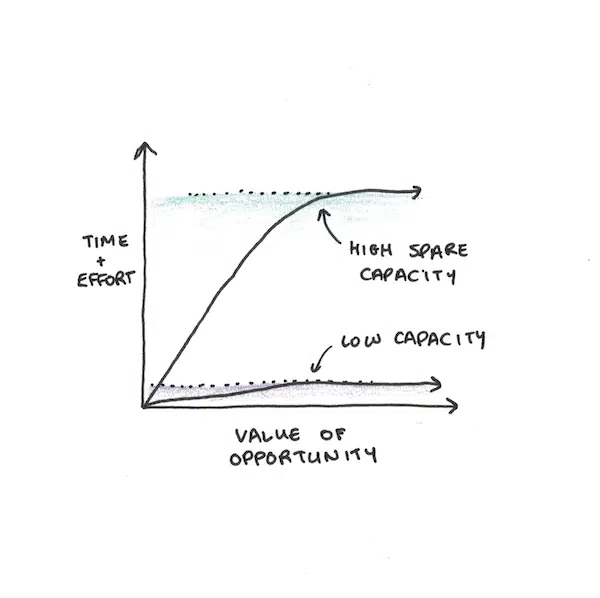 TIME
+
EFFORT
HIGH SPARE
CAPACITY
LOW CAPACITY
VALUE OF
OPPORTUNITY